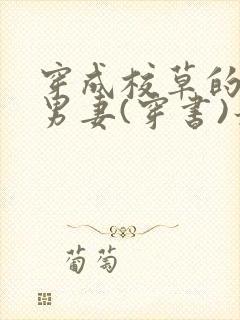 穿成校草的
男妻(穿书)
葡萄